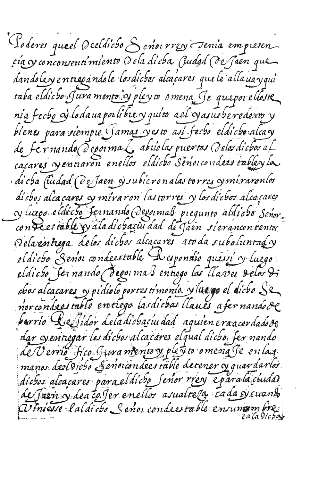 Poderes que el dicho Señor rrey tenia en presen
cia y con consentimiento de la dicha ciudad de Jaen que
dandole y entregandole los dichos alcaçares que le alla va y qui
taba el dicho Juramento y pleyto omenaje que por ello te
nia fecho y lo daba por libre y quito a el y a sus herederos y
bienes para siempre jamas y esto asi fecho el dicho alcay
de fernando de poimal abio las puertas de los dichos al
caçares y entraron en ellos el dicho Señor condestable y la
dicha ciudad de Jaen y subieron a las torres y miraron los
dichos alcaçares y miraron las torres y los dichos alcaçares
y luego el dicho fernando de poimal pregunto al dicho Señor
condestable y a la dicha ciudad de Jaen si eran contentos
de la entrega de los dichos alcaçares a toda su boluntad y
el dicho Señor condestable Respondio que si y luego
el dicho fernando de poimal entrego las llaves de los di
chos alcaçares y pidiolo por testimonio y luego el dicho Se
ñor condestable entrego las dichas llaves a fernando de
berrio Regidor de la dicha ciudad a quien era acordado de
dar y entregar los dichos alcaçares el qual dicho fernando
de berrio fiço Juramento y pleyto omenaje en las
manos del dicho Señor condestable de tener y guardar los
dichos alcaçares para el dicho señor rrey e para la ciudad
de Jaen y de acoger en ellos a su alteza cada y cuando
viniese al dicho Señor condestable en su nombre
e a la dicha